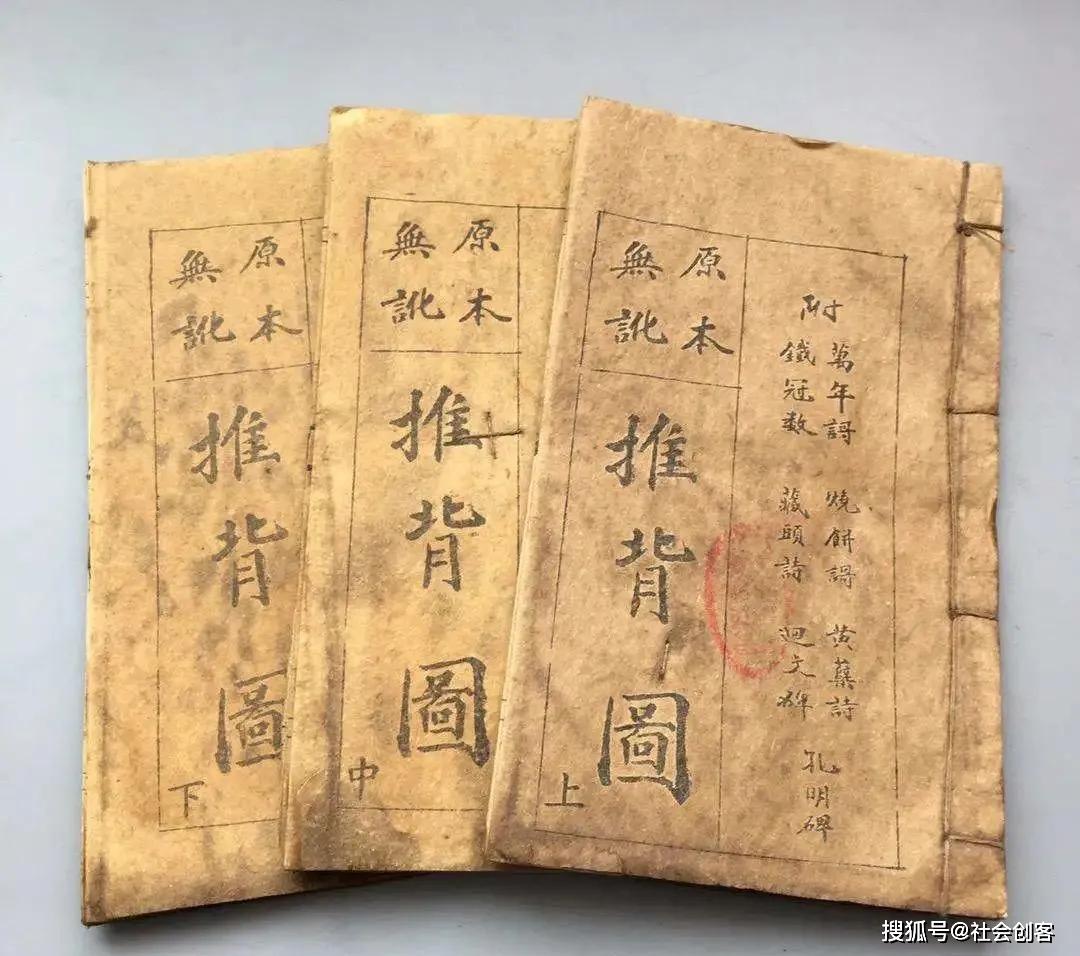 附
萬年謌 燒餅謌 黄蘗詩
鐵冠数 藏頭詩 迴文碑
孔明碑
原本
無訛
推背圖
上
原本
無訛
推背圖
中
原本
無訛
推背圖
下
搜狐号@社会创客